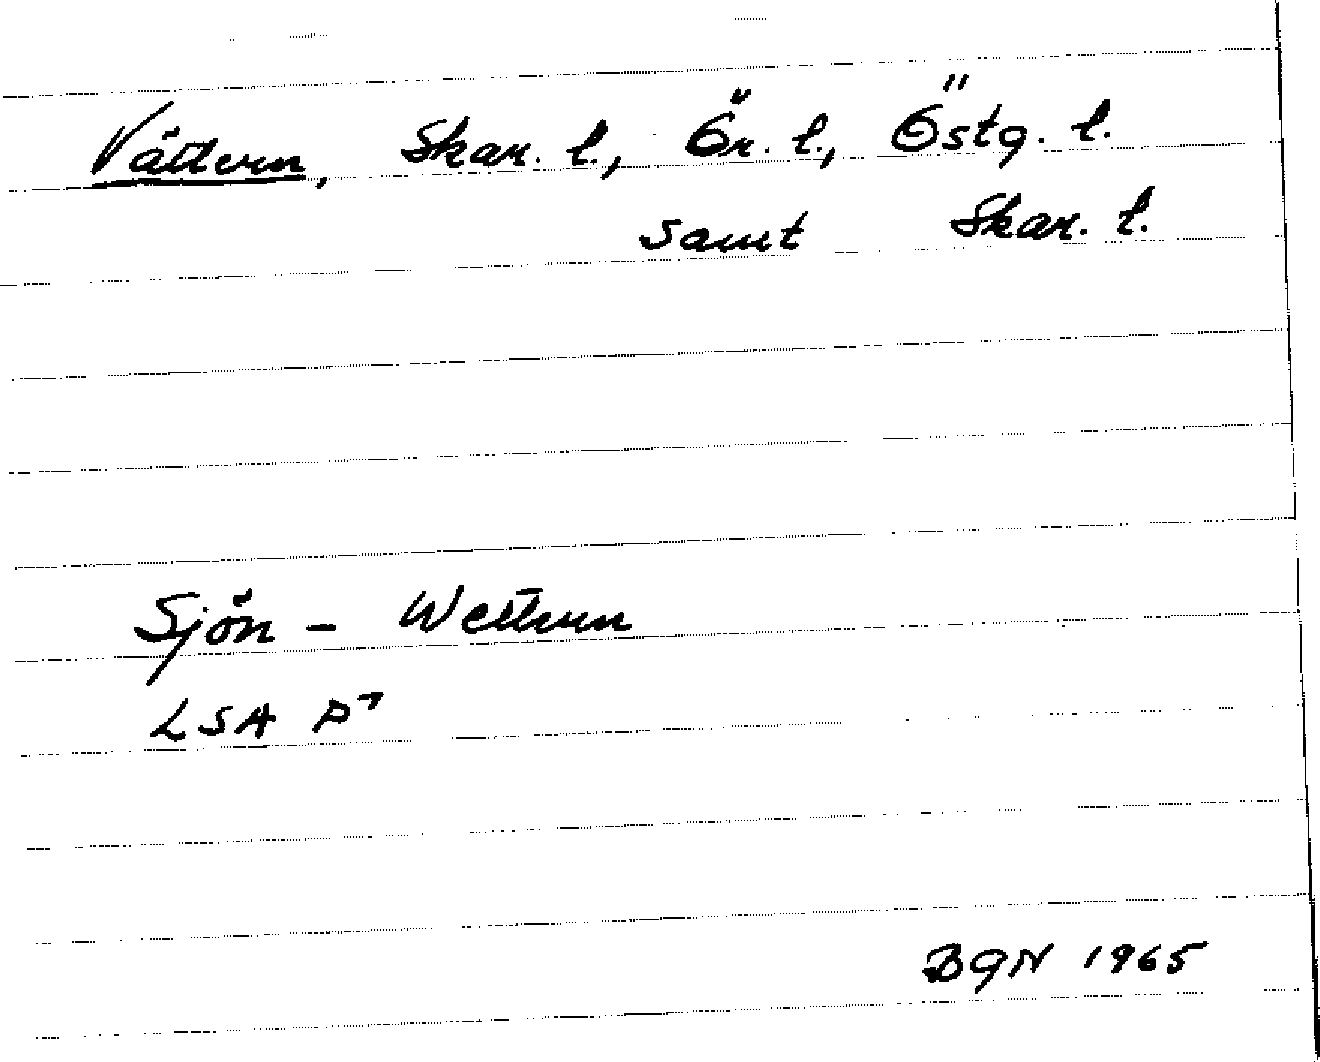 Vättern, Skar. l., Ör. l., Östg. l.
samt Skar. l.
Sjön - Wettern
LSA P7
BGN 1965